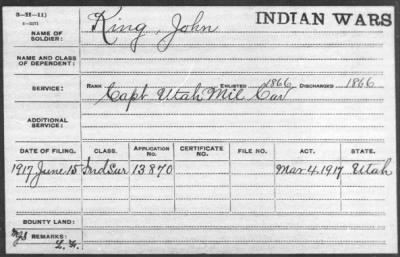 3-21-11)
INDIAN WARS
NAME OF SOLDIER: King, John
NAME AND CLASS OF DEPENDENT:
SERVICE: RANK Capt Utah Mil Cav ENLISTED 1866 DISCHARGED 1866
ADDITIONAL SERVICE:
DATE OF FILING. CLASS. APPLICATION No. CERTIFICATE No. FILE NO. ACT. STATE.
1917 June 15 Ind Sur 13870 Mar 4, 1917 Utah
BOUNTY LAND:
REMARKS: